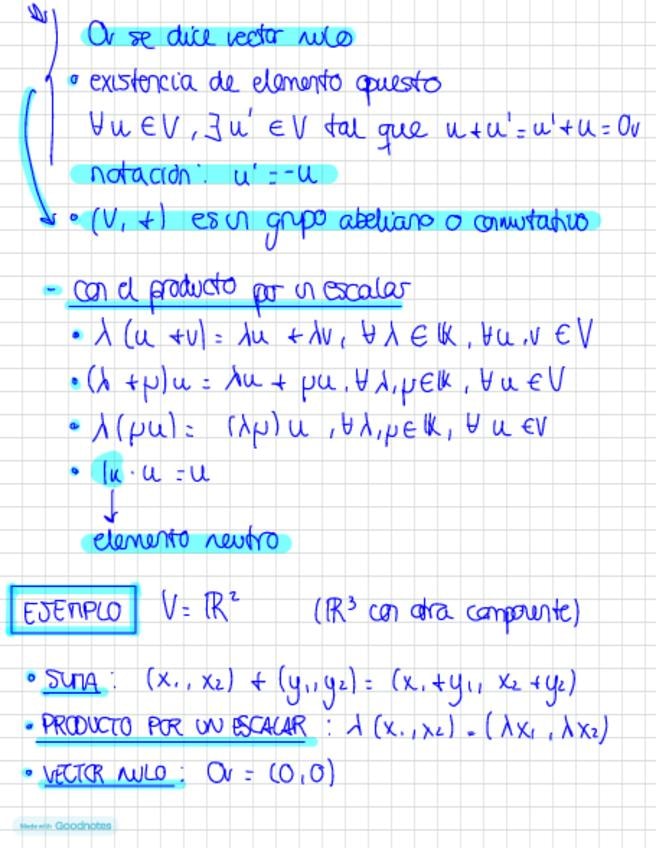 0v se dice vector nulo
• existencia de elemento opuesto
∀u ∈ V, ∃ u' ∈ V tal que u + u' = u' + u = 0v
notación: u' = -u
• (V, +) es un grupo abeliano o conmutativo
- con el producto por un escalar
• λ (u + v) = λu + λv, ∀ λ ∈ 𝕂, ∀u, v ∈ V
• (λ + μ)u = λu + μu, ∀ λ, μ ∈ 𝕂, ∀ u ∈ V
• λ(μu) = (λμ) u, ∀ λ, μ ∈ 𝕂, ∀ u ∈ V
• 1𝕂 · u = u
↓
elemento neutro
EJEMPLO V = ℝ² (ℝ³ con otra componente)
• SUMA: (x₁, x₂) + (y₁, y₂) = (x₁ + y₁, x₂ + y₂)
• PRODUCTO POR UN ESCALAR: λ (x₁, x₂) = (λx₁, λx₂)
• VECTOR NULO: 0v = (0,0)
Made with Goodnotes